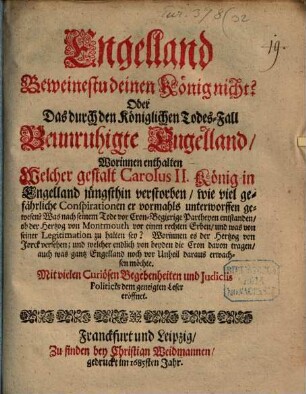 19.
Engelland
Beweinestu deinen König nicht?
Oder
Das durch den Königlichen Todes-Fall
Beunruhigte Engelland/
Worinnen enthalten
Welcher gestalt Carolus II. König in
Engelland jüngsthin verstorben/ wie viel ge-
fährliche Conspirationen er vormahls unterworffen ge-
wesen? Was nach seinem Tode vor Cron-Begierige Partheyen entstanden/
ob der Hertzog von Montmouth vor einen rechten Erben/ und was von
seiner Legitimation zu halten sey? Worinnen es der Hertzog von
Jorck versehen; und welcher endlich von beyden die Cron daron tragen/
auch was gantz Engelland noch vor Unheil daraus erwach-
sen möchte.
Mit vielen Curiösen Begebenheiten und Judiciis
Politicis dem geneigten Leser
eröffnet.
Franckfurt und Leipzig/
Zu finden bey Christian Weidmannen/
gedruckt im 1685sten Jahr.